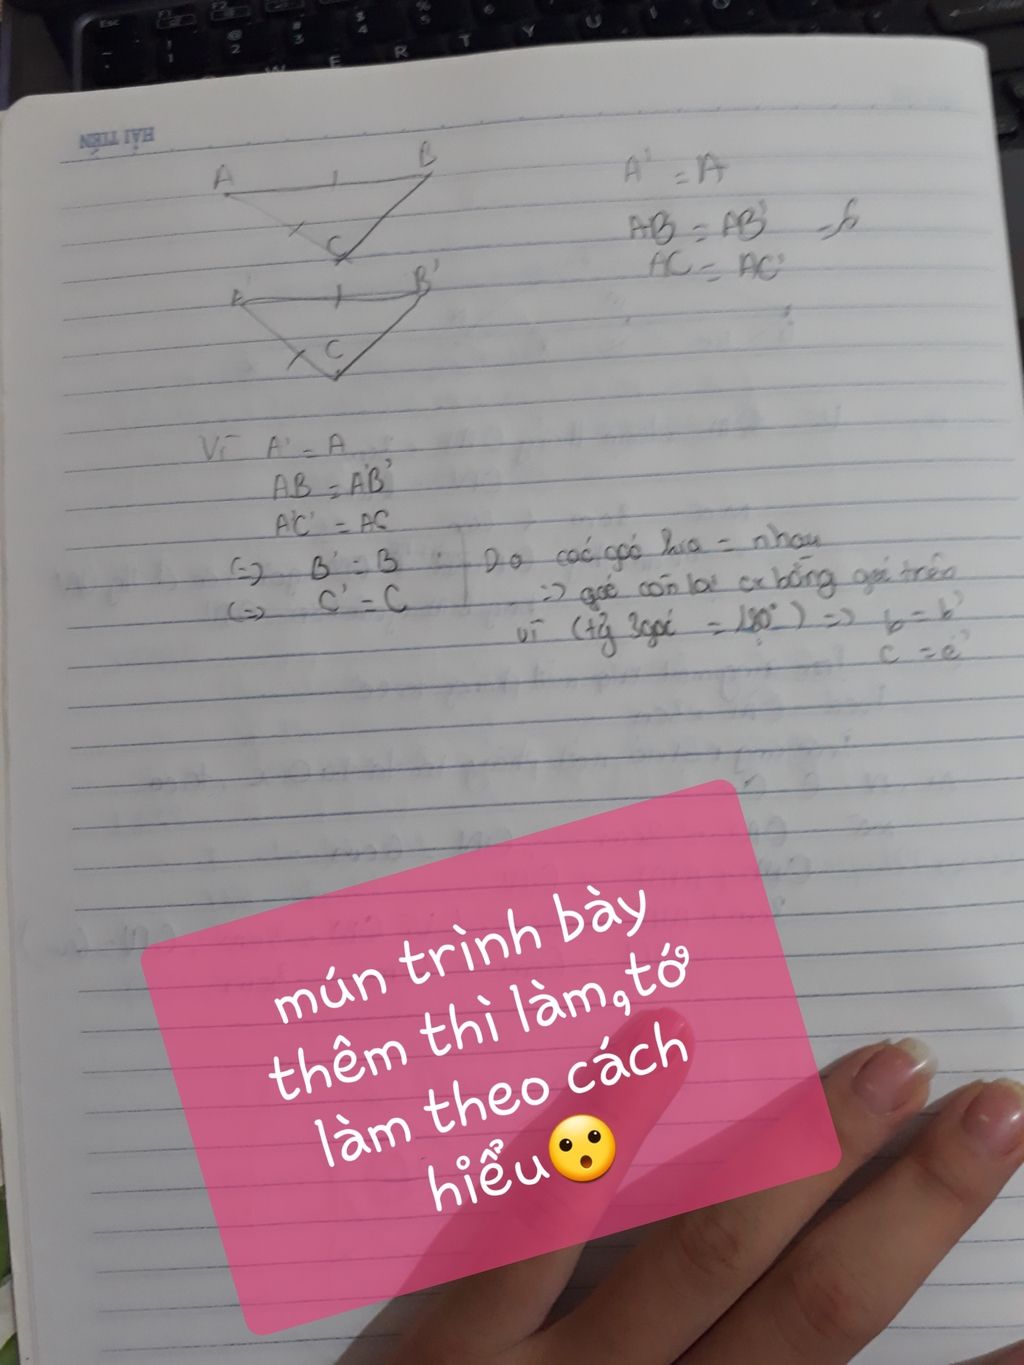 HẢI TIẾN
A B
C
A' B'
C
A' = A
AB = AB'
AC = AC'
Vì A' = A
AB = A'B'
A'C' = AC
(=) B' = B
(=) C' = C
Do các góc kia = nhau
=> góc còn lại cx bằng góc trên
vì (tg 3 góc = 180°) => b = b'
c = c'
mún trình bày
thêm thì làm,tớ
làm theo cách
hiểu😯